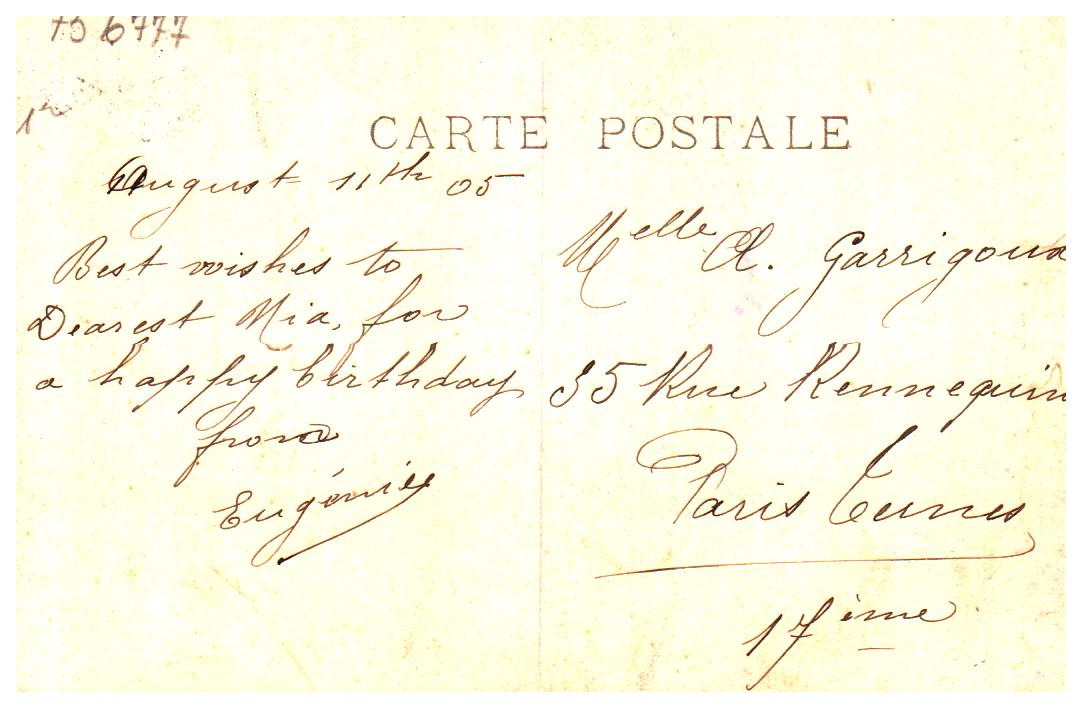 6777
CARTE POSTALE
August 11th 05
Best wishes to
Dearest Mia, for
a happy birthday
from
Eugénie
Melle A. Garrigoux
35 Rue Rennequin
Paris Ternes
17ème